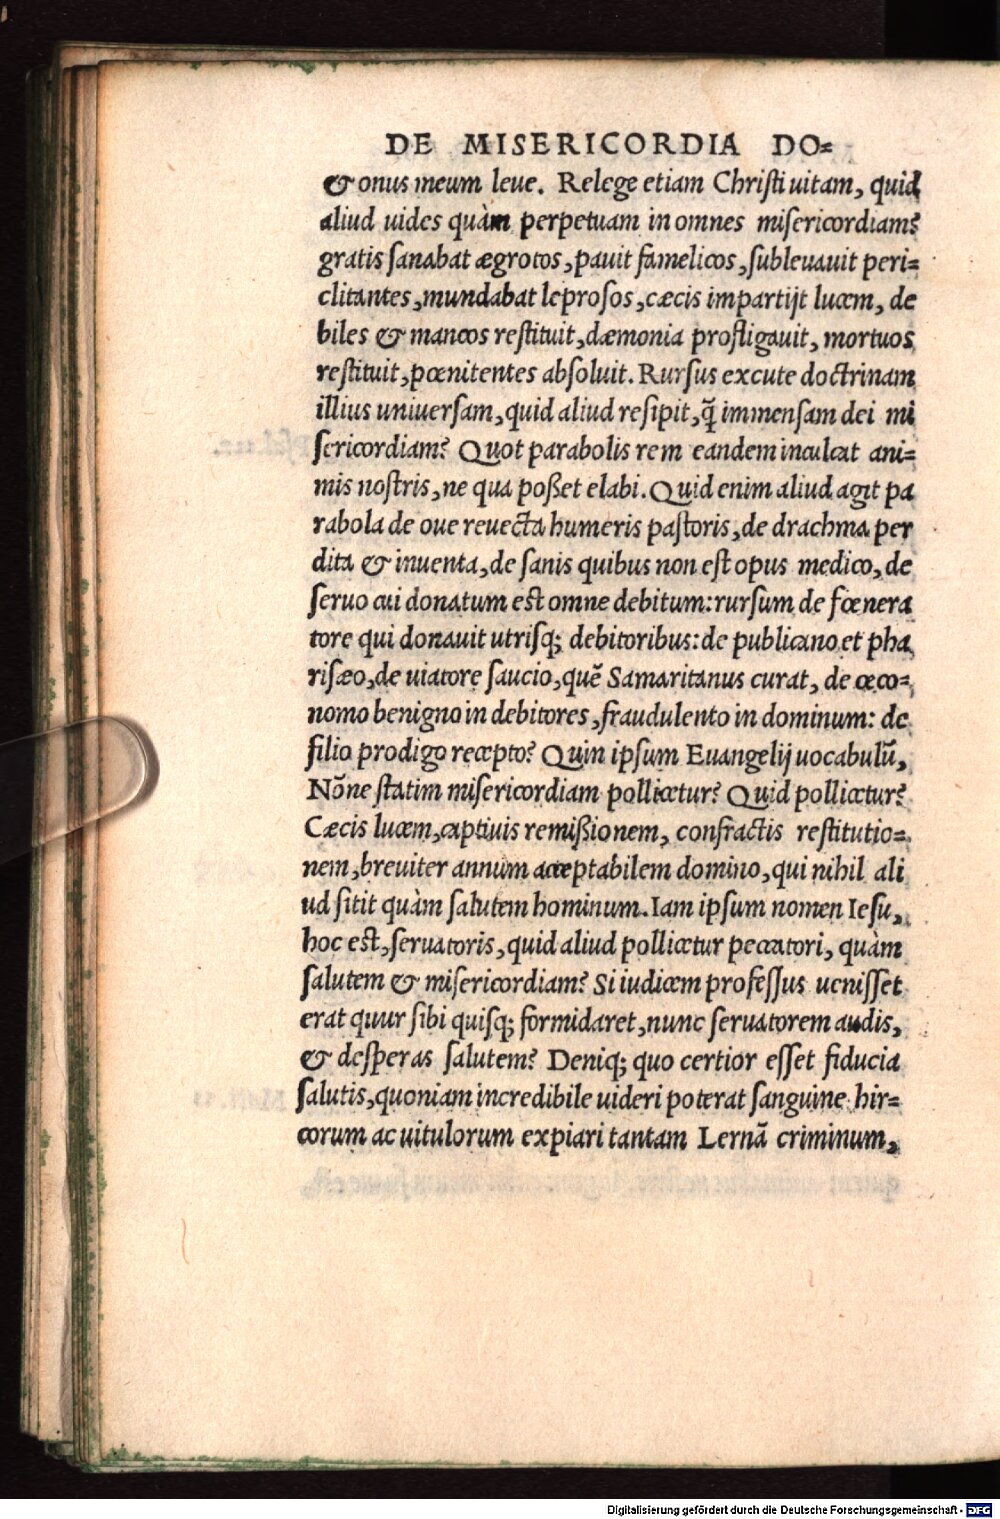 DE MISERICORDIA DO=
& onus meum leue. Relege etiam Christi uitam, quid
aliud uides quàm perpetuam in omnes misericordiam?
gratis sanabat ægrotos, pauit famelicos, subleuauit peri=
clitantes, mundabat leprosos, cæcis impartijt lucem, de
biles & mancos restituit, dæmonia profligauit, mortuos
restituit, pœnitentes absoluit. Rursus excute doctrinam
illius uniuersam, quid aliud resipit, q̃ immensam dei mi
sericordiam? Quot parabolis rem eandem inculcat ani=
mis nostris, ne qua posset elabi. Quid enim aliud agit pa
rabola de oue reuecta humeris pastoris, de drachma per
dita & inuenta, de sanis quibus non est opus medico, de
seruo cui donatum est omne debitum: rursum de fœnera
tore qui donauit utrisq; debitoribus: de publicano et pha
risæo, de uiatore saucio, quẽ Samaritanus curat, de œco=
nomo benigno in debitores, fraudulento in dominum: de
filio prodigo recepto? Quin ipsum Euangelij uocabulũ,
Nõne statim misericordiam pollicetur? Quid pollicetur?
Cæcis lucem, captiuis remißionem, confractis restitutio=
nem, breuiter annum acceptabilem domino, qui nihil ali
ud sitit quàm salutem hominum. Iam ipsum nomen Iesu,
hoc est, seruatoris, quid aliud pollicetur peccatori, quàm
salutem & misericordiam? Si iudicem professus uenisset
erat quur sibi quisq; formidaret, nunc seruatorem audis,
& desperas salutem? Deniq; quo certior esset fiducia
salutis, quoniam incredibile uideri poterat sanguine hir=
corum ac uitulorum expiari tantam Lernã criminum,
Digitalisierung gefördert durch die Deutsche Forschungsgemeinschaft - DFG